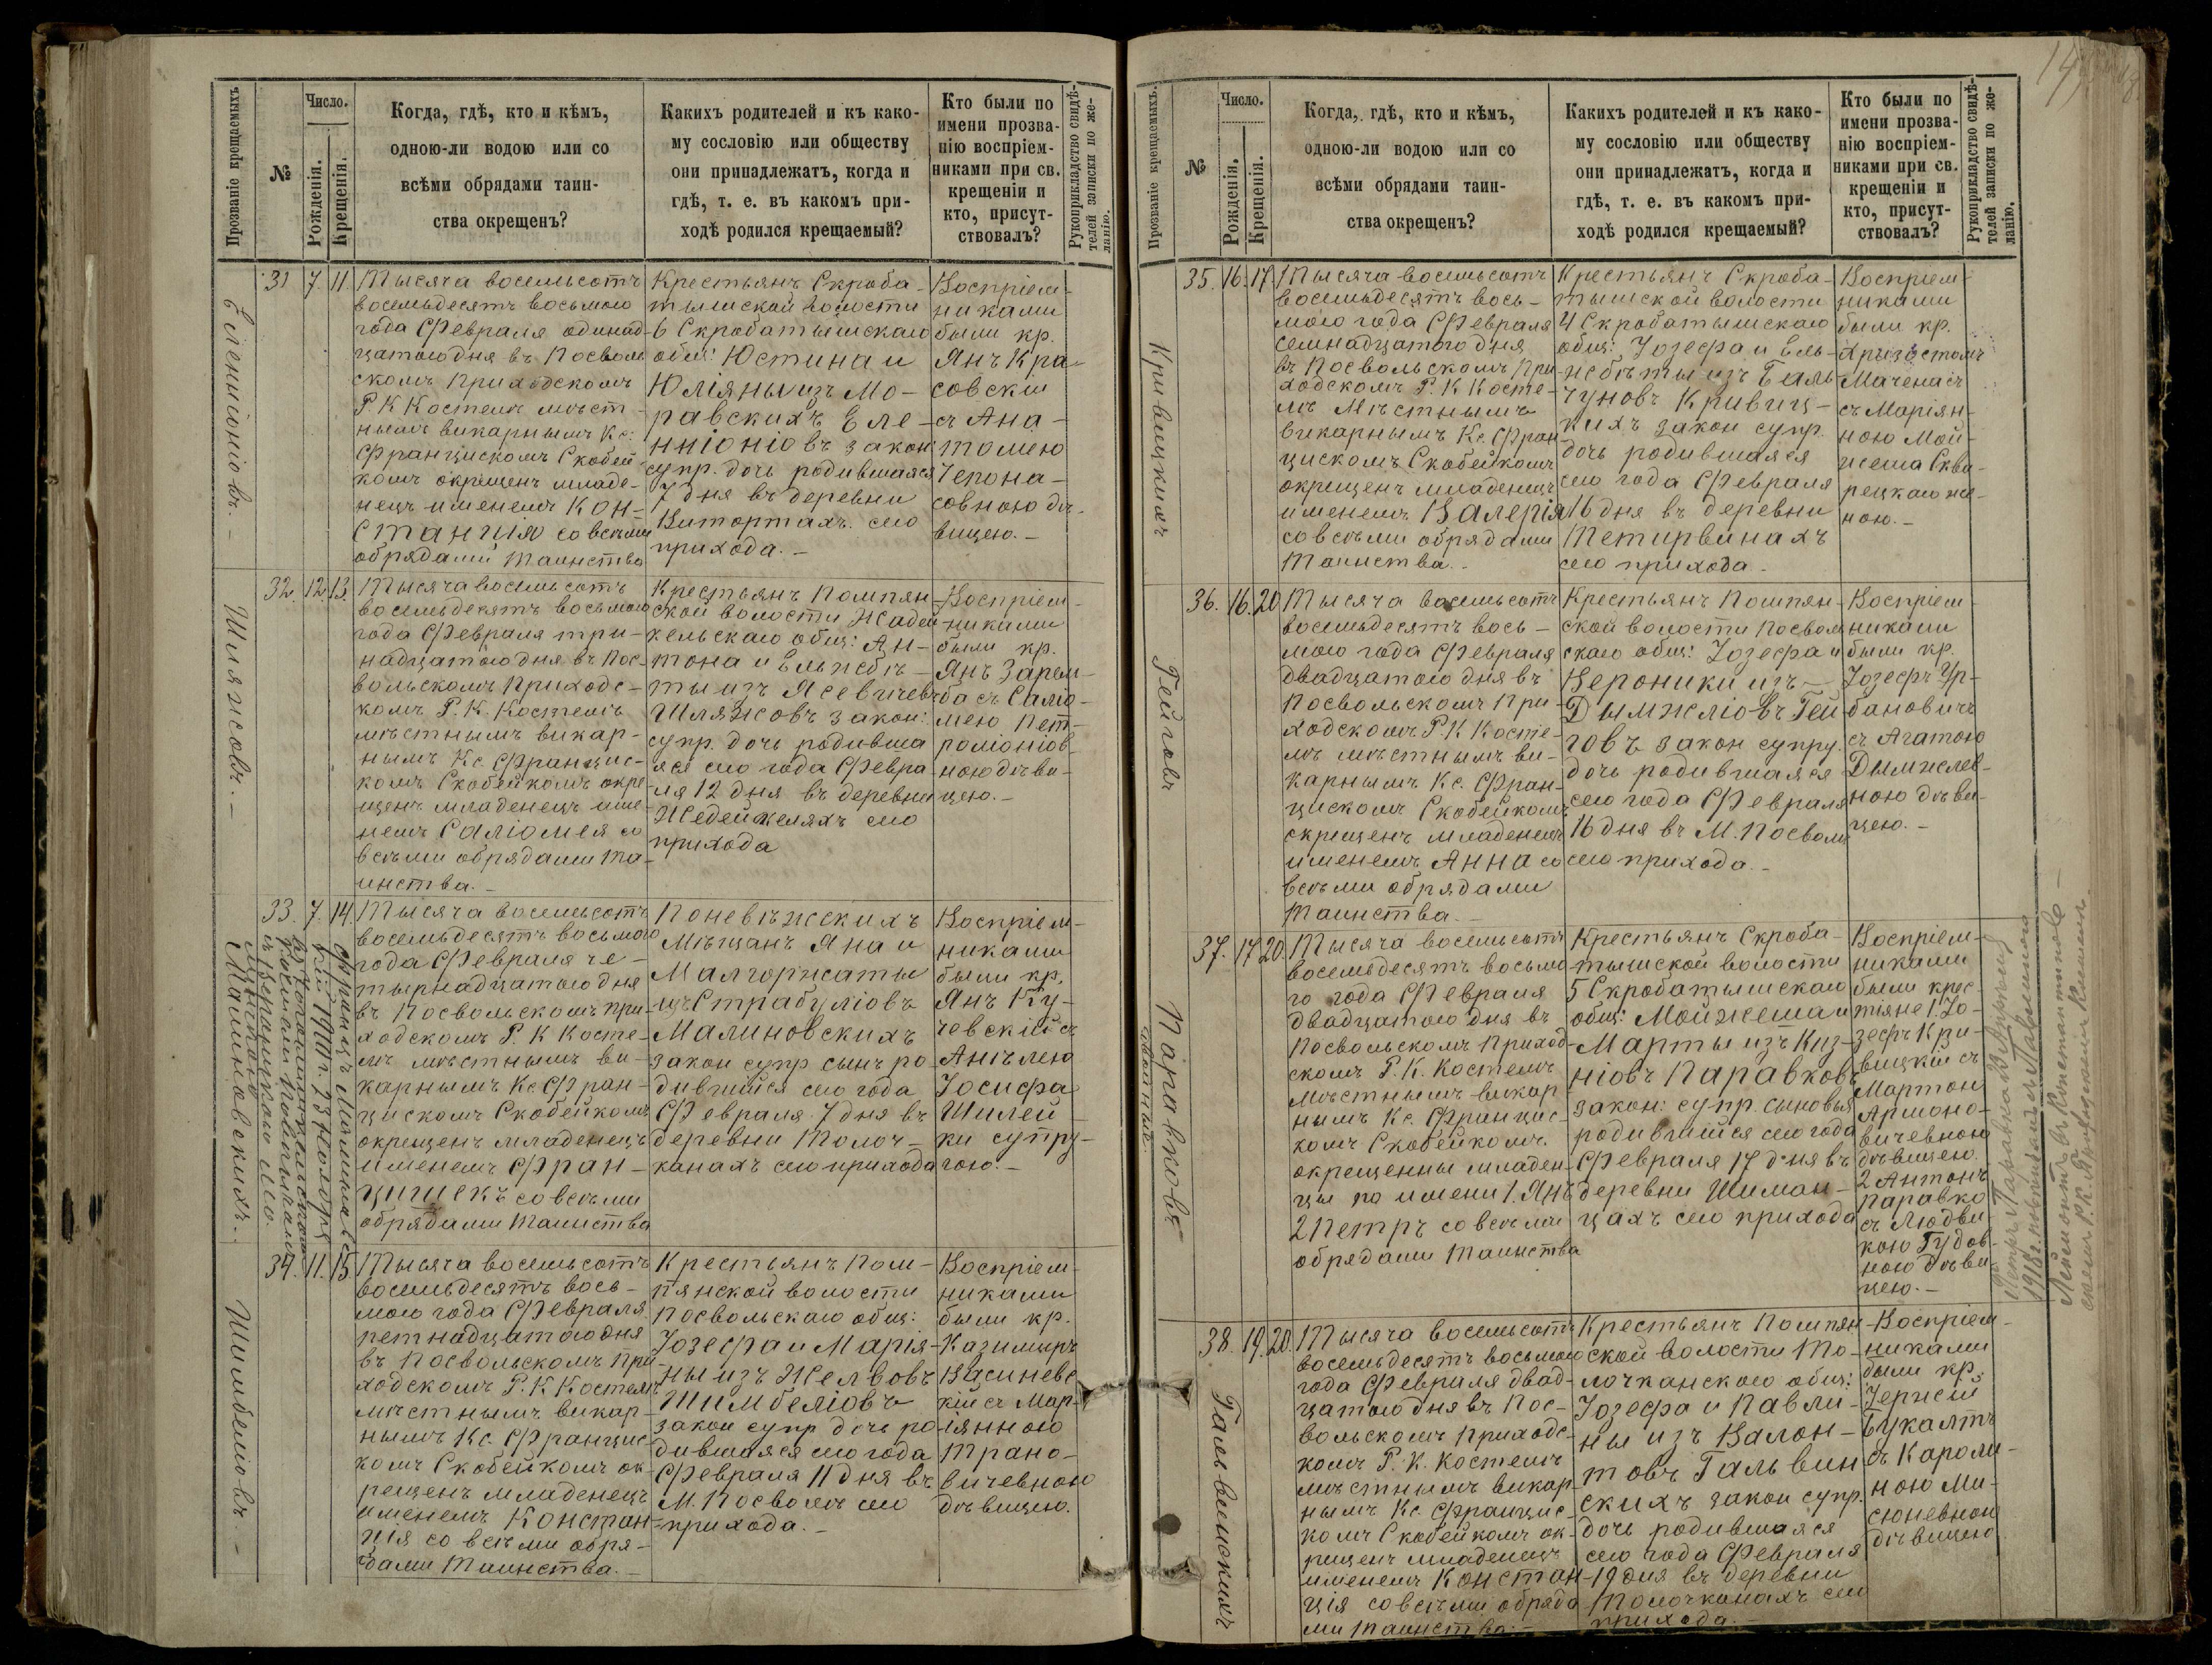 Прозваніе крещаемыхъ
№
Число.
Рожденія.
Крещенія.
Когда, гдѣ, кто и кѣмъ,
одною-ли водою или со
всѣми обрядами таин-
ства окрещенъ?
Какихъ родителей и къ како-
му сословію или обществу
они принадлежатъ, когда и
гдѣ, т. е. въ какомъ при-
ходѣ родился крещаемый?
Кто были по
имени прозва-
нію воспріем-
никами при св.
крещеніи и
кто, присут-
ствовалъ?
Рукоприкладство свидѣ-
телей записки по же-
ланію.
Еленніоніовъ.-
31
7.
11.
Тысяча восемьсотъ
восемьдесятъ восьмого
года Февраля одинад-
цатого дня въ Посволь
скомъ Приходскомъ
Р К Костелѣ мѣст-
нымъ викарнымъ Кс:
Францискомъ Скобей-
комъ окрещенъ младе-
нецъ именемъ Кон-
станція со всѣми
обрядами Таинства
Крестьянъ Скроба-
тышской волости
6 Скробатышскаго
общ: Юстина и
Юліяны изъ Мо-
равскихъ Еле-
нніоніовъ закон
супр. дочь родившаяся
7 дня въ деревни
Витортахъ. сего
прихода.-
Воспріем-
никами
были кр.
Янъ Кра-
совскій
съ Ана-
толею
Черона-
совною дѣ-
вицею.-
Шляжовъ.-
32.
12.
13.
Тысяча восемьсотъ
восемьдесятъ восьмого
года Февраля три-
надцатого дня въ Пос-
вольскомъ Приходс-
комъ Р. К. Костелѣ
мѣстнымъ викар-
нымъ Кс. Францис-
комъ Скобейкомъ окре-
щенъ младенецъ име-
немъ Саліомея со
всѣми обрядами Та-
инства.-
Крестьянъ Помпян-
ской волости Жадей-
кельскаго общ: Ан-
тона и Ельжбѣ-
ты изъ Ясевичевъ
Шляжовъ закон:
супр. дочь родивша
яся сего года Февра-
ля 12 дня въ деревни
Жедейкеляхъ сего
прихода
Воспріем-
никами
были кр.
Янъ Зарем-
ба съ Саліо-
мею Пет-
роліоніов-
ною дѣви-
цею.-
Малиновскихъ.
33.
7.
14
Тысяча восемьсотъ
восемьдесятъ восьмого
года Февраля че-
тырнадцатого дня
въ Посвольскомъ При-
ходскомъ Р. К Косте-
лѣ мѣстнымъ ви-
карнымъ Кс Фран-
цискомъ Скобейкомъ
окрещенъ младенецъ
именемъ Фран-
цишекъ со всѣми
обрядами Таинства
Поневѣжскихъ
Мѣщанъ Яна и
Малгоржаты
изъ Страбуліовъ
Малиновскихъ
закон супр сынъ ро-
дившійся сего года
Февраля 7 дня въ
деревни Толоч-
канахъ сего прихода
Воспріем-
никами
были кр.
Янъ Ку-
чевскій съ
Анѣлею
Іосифа
Шилей
ки супру-
гою.-
Шимбеліовъ.-
34.
11.
15
Тысяча восемьсотъ
восемьдесятъ вось-
мого года Февраля
петнадцатого дня
въ Посвольскомъ При
ходскомъ Р. К Костелѣ
мѣстнымъ викар-
нымъ Кс. Францис-
комъ Скобейкомъ ок-
рещенъ младенецъ
именемъ Констан-
ція со всѣми обря-
дами Таинства.-
Крестьянъ Пом-
пянской волости
Посвольскаго общ:
Іозефа и Марія-
ны изъ Желвовъ
Шимбеліовъ
закон супр дочь ро
дившаяся сего года
Февраля 11 дня въ
М. Посволѣ сего
прихода.-
Воспріем-
никами
были кр.
Казимиръ
Васиневс
кій съ Мар-
іянною
Трано-
вичевною
дѣвицею.
Прозваніе крещаемыхъ.
№
Число.
Рожденія.
Крещенія.
Когда, гдѣ, кто и кѣмъ,
одною-ли водою или со
всѣми обрядами таин-
ства окрещенъ?
Какихъ родителей и къ како-
му сословію или обществу
они принадлежатъ, когда и
гдѣ, т. е. въ какомъ при-
ходѣ родился крещаемый?
Кто были по
имени прозва-
нію воспріем-
никами при св.
крещеніи и
кто, присут-
ствовалъ?
Рукоприкладство свидѣ-
телей записки по же-
ланію.
Кривицкихъ
35.
16.
17.
Тысяча восемьсотъ
восемьдесятъ вось-
мого года Февраля
семнадцатого дня
въ Посвольскомъ При
ходскомъ Р. К Косте-
лѣ Мѣстнымъ
викарнымъ Кс. Фран
цискомъ Скобейкомъ
окрещенъ младенецъ
именемъ Валерія
со всѣми обрядами
Таинства.-
Крестьянъ Скроба-
тышской волости
4 Скробатышскаго
общ: Іозефа и Ель-
жбѣты изъ Баль-
чуновъ Кривиц-
кихъ закон супр.
дочь родившаяся
сего года Февраля
16 дня въ деревни
Петирвинахъ
сего прихода.-
Воспріем-
никами
были кр.
Хризостомъ
Маченасъ
съ Маріян-
ною Мой-
жеша Сква-
рецкаго же-
ною.-
Гейговъ
36.
16.
20
Тысяча восемьсотъ
восемьдесятъ вось-
мого года Февраля
двадцатого дня въ
Посвольскомъ При-
ходскомъ Р. К Косте-
лѣ мѣстнымъ ви-
карнымъ Кс. Фран-
цискомъ Скобейкомъ
окрещенъ младенецъ
именемъ Анна со
всѣми обрядами
Таинства.-
Крестьянъ Помпян-
ской волости Посволь
скаго общ: Іозефа и
Вероники изъ
Дымжліовъ Гей-
говъ закон супру.
дочь родившаяся
сего года Февраля
16 дня въ М. Посволѣ
сего прихода.-
Воспріем-
никами
были кр.
Іозефъ Ур-
бановичъ
съ Агатою
Дымжлев-
ною дѣви-
цею.-
Паравковъ
двойные.
37.
17
20.
Тысяча восемьсотъ
восемьдесятъ восьмо
го года Февраля
двадцатого дня въ
Посвольскомъ Приход-
скомъ Р. К. Костелѣ
мѣстнымъ викар
нымъ Кс. Францис-
комъ Скобейкомъ
окрещенны младен-
цы по имени 1. Янъ
2 Петръ со всѣми
обрядами Таинства
Крестьянъ Скроба-
тышской волости
5 Скробатышскаго
общ: Мойжеша и
Марты изъ Киз-
ніовъ Паравковъ
закон: супр. сыновья
родившійся сего года
Февраля 17 дня въ
деревни Шиман-
цахъ сего прихода
Воспріем-
никами
были крес-
тіяне 1. Іо-
зефъ Кри-
вицкій съ
Мартою
Армоно-
вичевною
дѣвицею.
2 Антонъ
Паравко
съ Людви
кою Гудов-
ною дѣви
цею.-
Гальвинскихъ
38.
19.
20.
Тысяча восемьсотъ
восемьдесятъ восьмого
года Февраля двад-
цатого дня въ Пос-
вольскомъ Приходс-
комъ Р. К. Костелѣ
мѣстнымъ викар-
нымъ Кс. Францис-
комъ Скобейкомъ ок-
рещенъ младенецъ
именемъ Констан-
ція со всѣми обряда
ми Таинства.-
Крестьянъ Помпян-
ской волости То-
лочканского общ:
Іозефа и Павли-
ны изъ Валон-
товъ Гальвин
скихъ закон супр.
дочь родившаяся
сего года Февраля
19 дня въ деревни
Толочканахъ сего
прихода.-
Воспріем-
никами
были кр.
Іержій
Букалтъ
съ Кароли-
ною Ми-
сюневною
дѣвицею